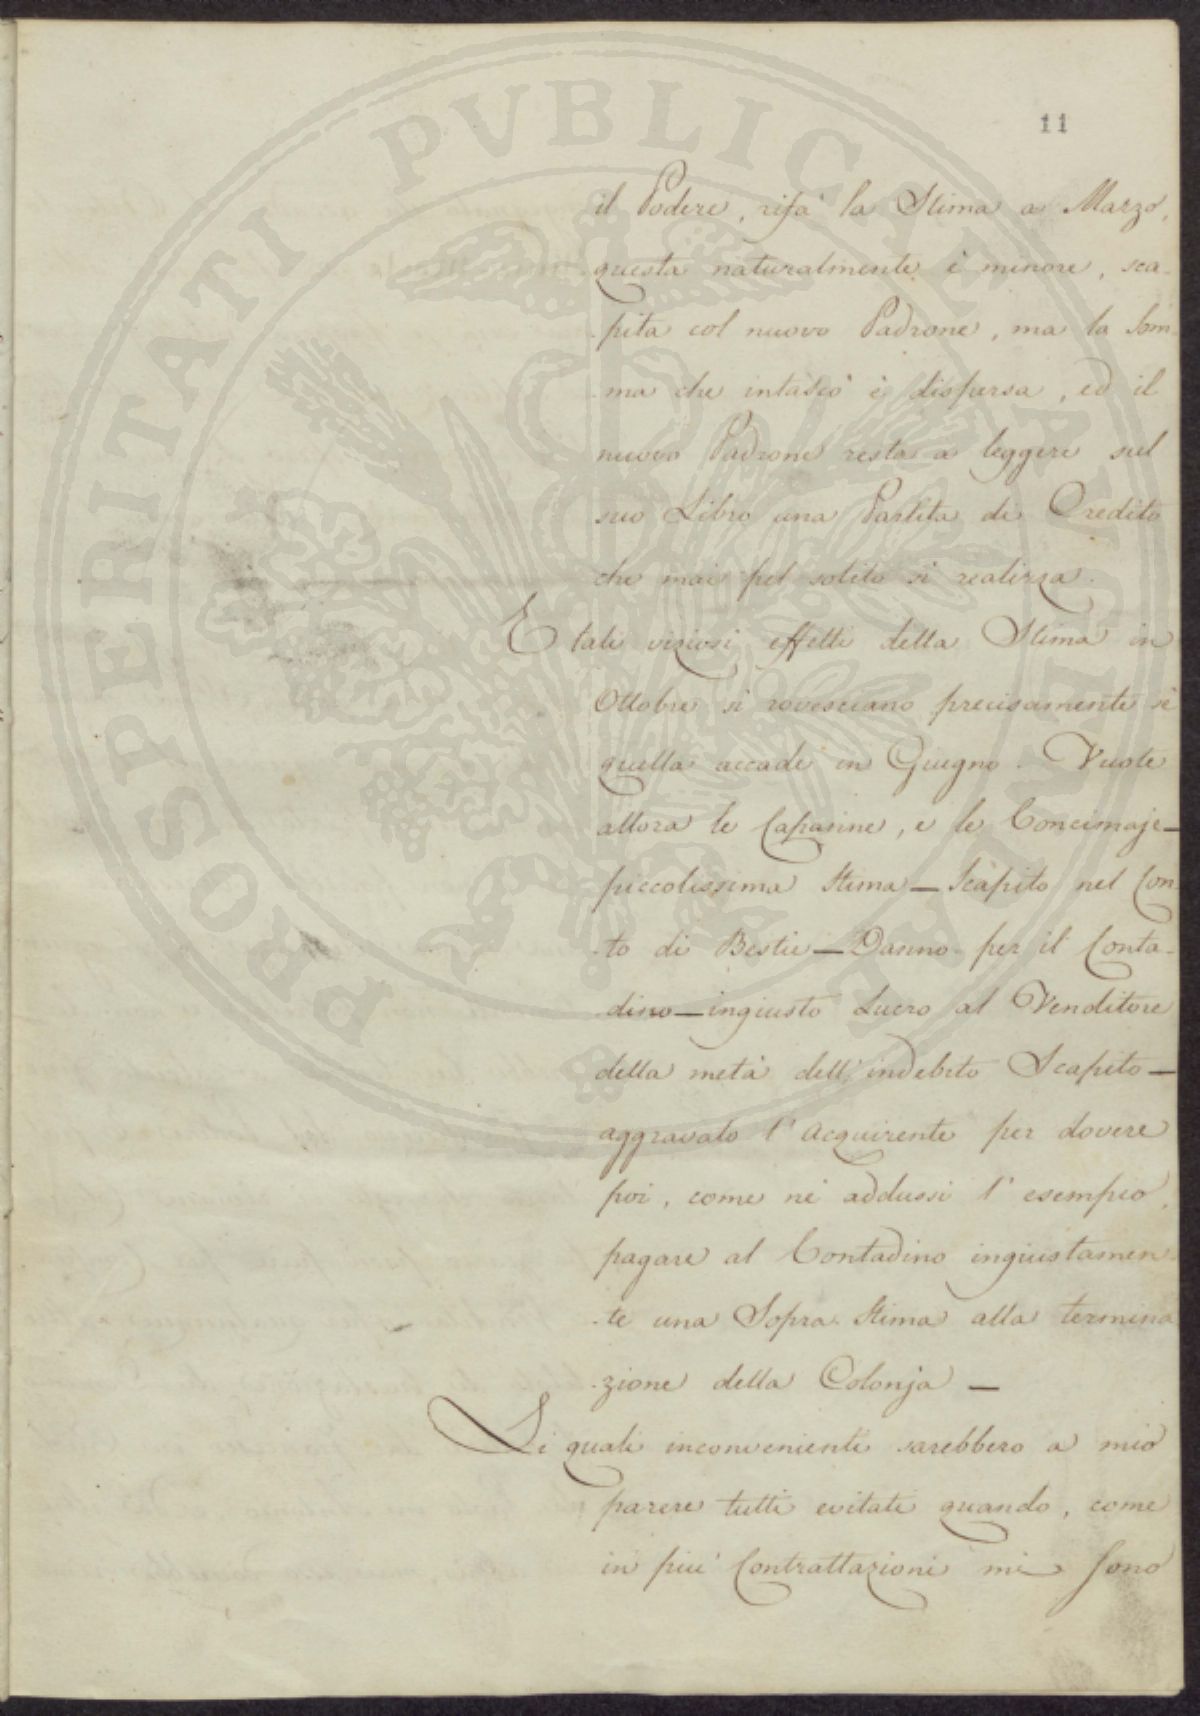 PROSPERITATI PVBLICAE AVGENDAE
11
il Podere, rifà la Stima a Marzo,
questa naturalmente è minore, sca-
-pita col nuovo Padrone, ma la Som-
-ma che intascò è dispersa, ed il
nuovo Padrone resta a leggere sul
suo Libro una Partita di Credito
che mai pel solito si realizza.
E tali viziosi effetti della Stima in
Ottobre si rovesciano precisamente se
quella accade in Giugno. Vuote
allora le Capanne, e le Concimaje—
piccolissima Stima — Scapito nel Con-
-to di Bestie — Danno per il Conta-
-dino — ingiusto Lucro al Venditore
della metà dell'indebito Scapito —
aggravato l'Acquirente per dovere
poi, come ne addussi l'esempio,
pagare al Contadino ingiustamen-
-te una Sopra-Stima alla termina
-zione della Colonja —
Li quali inconvenienti sarebbero a mio
parere tutti evitati quando, come
in piu' Contrattazioni mi sono